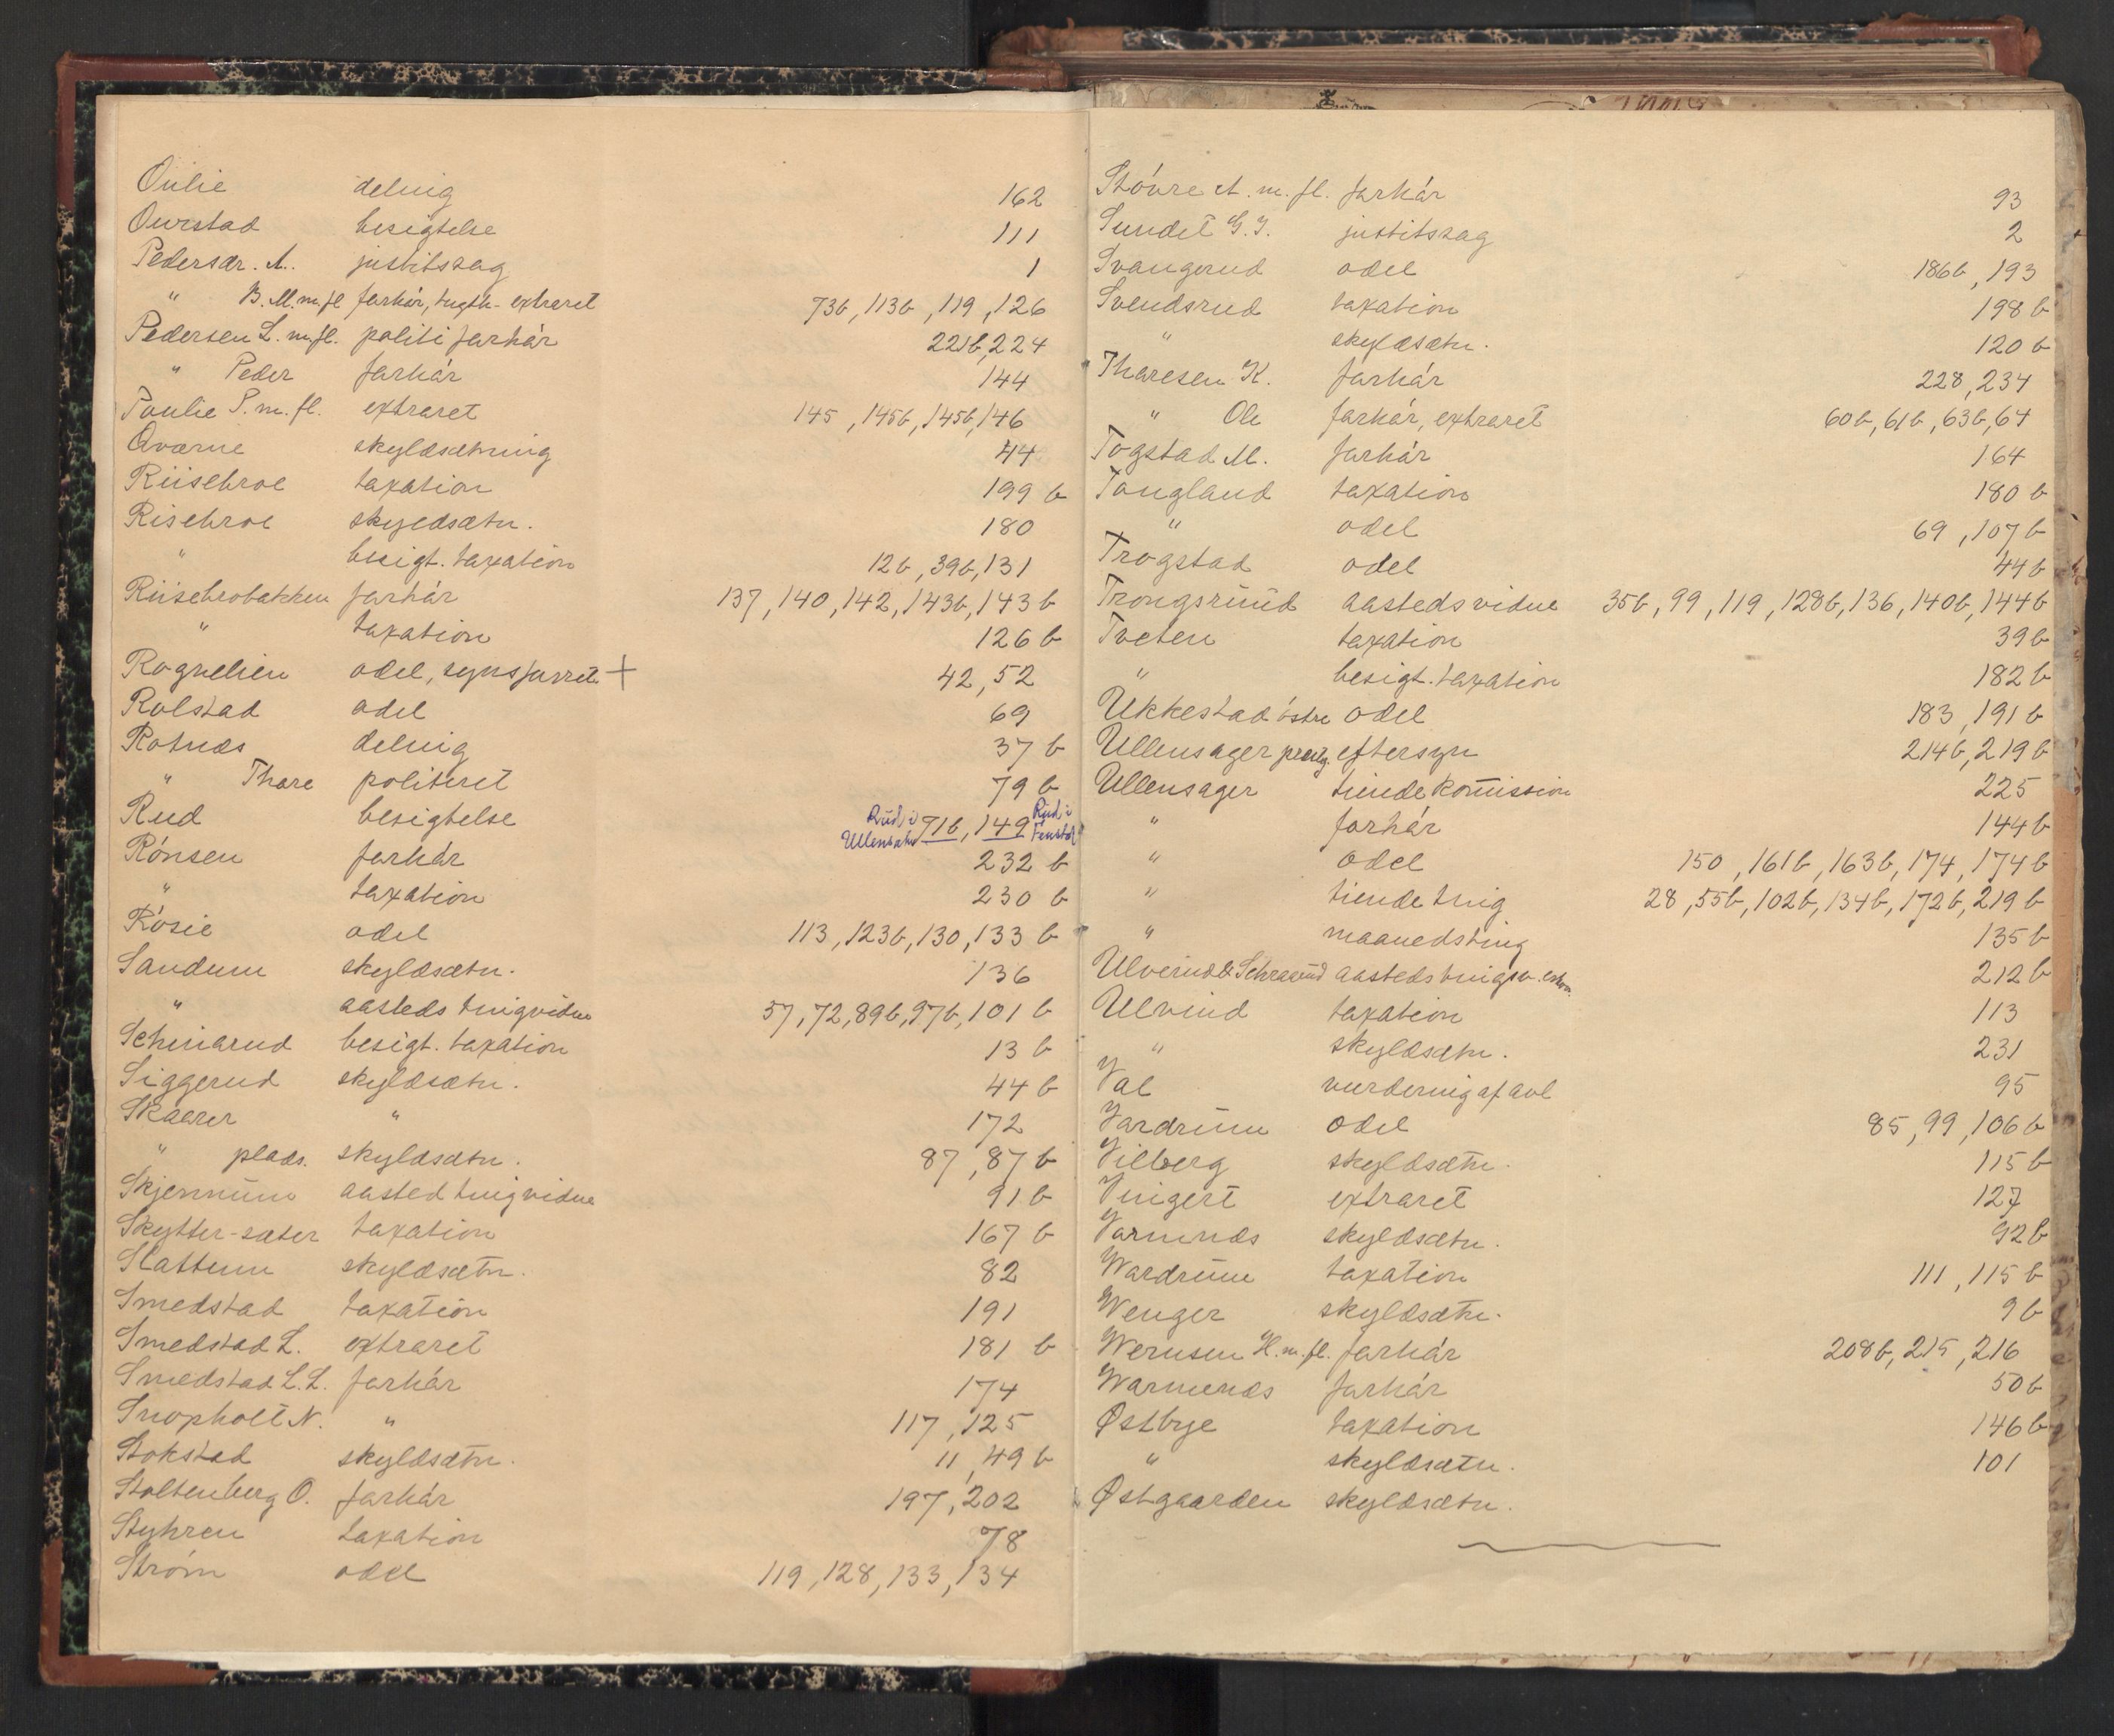 Oulie deling 162
Ourstad besigtelse 111
Pedersdr. A. justitssag 1
" B. M. m. fl forhór, tugth- extraret 73b, 113b, 119, 126
Pedersen L. m. fl. politiforhór 221b, 224
" Peder forhór 144
Poulie P. m. fl. extraret 145, 145b, 145b, 146
Qværne skyldsætning 44
Riisebroe taxation 199 b
Risebroe skyldsætn. 180
" besigt. taxation 12b, 39b, 131
Riisebrobakken forhór 137, 140, 142, 143b, 143 b
" taxation 126 b
Rognelien odel, synsforret + 42, 52
Rolstad odel 69
Rotnæs deling 37 b
" Thore politiret 79 b
Rud besigtelse Rud i Ullensaker 71b, 149 Rud i
Rónsen forhór 232 b
" taxation 230 b
Rósie odel 113, 123b, 130, 133 b
Sandum skyldsætn. 136
" aasteds tingvidne 57, 72, 89b, 97b, 101 b
Schinarud besigt. taxation 13 b
Siggerud skyldsætn. 44 b
Skaarer " 172
" plads. skyldsætn. 87, 87 b
Skjennum aasted tingvidne 91 b
Skytter-sæter taxation 167 b
Slattum skyldsætn. 82
Smedstad taxation 191
Smedstad L. extraret 181 b
Smedstad L. L. forhór 174
Snopholt N. " 117, 125
Stokstad skyldsætn. 11, 49 b
Stoltenberg O. forhór 197, 202
Styhren taxation 78
Stróm odel 119, 128, 133, 134
Stóvre A. m. fl. forhór 93
Sundet G. J. justitssag 2
Svangerud odel 186b, 193
Svendsrud taxation 198 b
" skyldsætn. 120 b
Thoresen K. forhór 228, 234
" Ole forhór, extraret 60b, 61b, 63b, 64
Togstad M. forhór 164
Tongland taxation 180 b
" odel 69, 107 b
Trogstad odel 44 b
Trongsrud aastedsvidne 35b, 99, 119, 128b, 136, 140b, 144b
Tveten taxation 39b
" besigt. taxation 182 b
Ukkestad óstre odel 183, 191 b
Ullensager præstg. eftersyn 214b, 219 b
Ullensager tiendekomission 225
" forhór 144b
" odel 150, 161b, 163b, 174, 174b
" tiendeting 28, 55b, 102b, 134b, 172b, 219 b
" maanedsting 135b
aastedsting 212b
Ulvind taxation 113
" skyldsætn. 231
Val vurdering af avl 95
Vardrum odel 85, 99, 106b
Vilberg skyldsætn. 115b
Vingert extraret 127
Varnnæs skyldsætn. 92b
Wardrum taxation 111, 115 b
Wenger skyldsætn. 9b
Wernsen H. m. fl. forhór 208b, 215, 216
Warnnæs forhór 50b
Østbye taxation 146b
" skyldsætn. 101
Østgaarden skyldsætn.